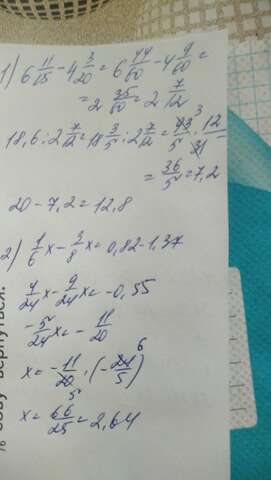 1) 6 11/15 - 4 3/20 = 6 44/60 - 4 9/60 =
= 2 35/60 = 2 7/12
18,6 : 2 7/12 = 18 3/5 : 2 7/12 = 93/5 · 12/31 = 3
= 36/5 = 7,2
20 - 7,2 = 12,8
2) 1/6 x - 3/8 x = 0,82 - 1,37
4/24 x - 9/24 x = -0,55
-5/24 x = - 11/20
x = - 11/20 · (- 24/5) 6
5
x = 66/25 = 2,64
вернуться.